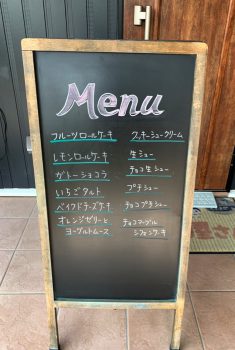 Menu
フルーツロールケーキ
レモンロールケーキ
ガトーショコラ
いちごタルト
ベイクドチーズケーキ
オレンジゼリーと
ヨーグルトムース
クッキーシュークリーム
生シュー
チョコ生シュー
プチシュー
チョコプチシュー
チョコマーブル
シフォンケーキ